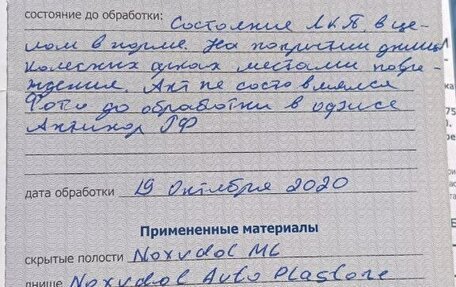 состояние до обработки: Состояние ЛКП в це-
лом в норме. На покрытии днища
колесных арках местами повре-
ждения. Акт не составлялся
Фото до обработки в офисе
Антикор РФ
дата обработки 19 Октября 2020
Примененные материалы
скрытые полости Noxudol ML
днище Noxudol Auto Plastone